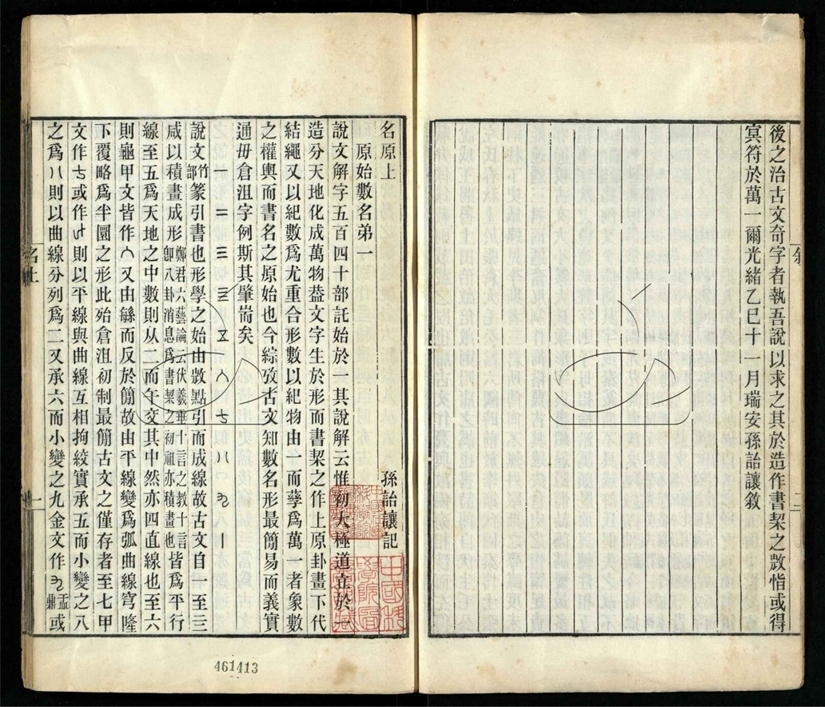 後之治古文奇字者執吾說以求之其於造作書栔之敳恉或得
冥符於萬一爾光緒乙巳十一月瑞安孫詒讓敘
敘
二
名原上
孫詒讓記
原始數名弟一
說文解字五百四十部託始於一其說解云惟初大極道立於一
造分天地化成萬物葢文字生於形而書栔之作上原卦畫下代
結繩又以紀數爲尤重合形數以紀物由一而孳爲萬一者象數
之權輿而書名之原始也今綜攷古文知數名形最簡易而義實
通毌倉沮字例斯其肇耑矣
一二三亖
說文竹部篆引書也形學之始由敳點引而成線故古文自一至三
咸以積畫成形鄭君六藝論云伏羲垂十言之教十言卽八卦消息爲書栔之初祖亦積畫也皆爲平行
線至五爲天地之中數則从二而午交其中然亦四直線也至六
則龜甲文皆作又由緐而反於簡故由平線變爲弧曲線穹隆
下覆略爲半圜之形此殆倉沮初制最簡古文之僅存者至七甲
文作或作則以平線與曲線互相拘絞實承五而小變之八
之爲八則以曲線分列爲二又承六而小變之九金文作盂鼎或
名上
一
461413